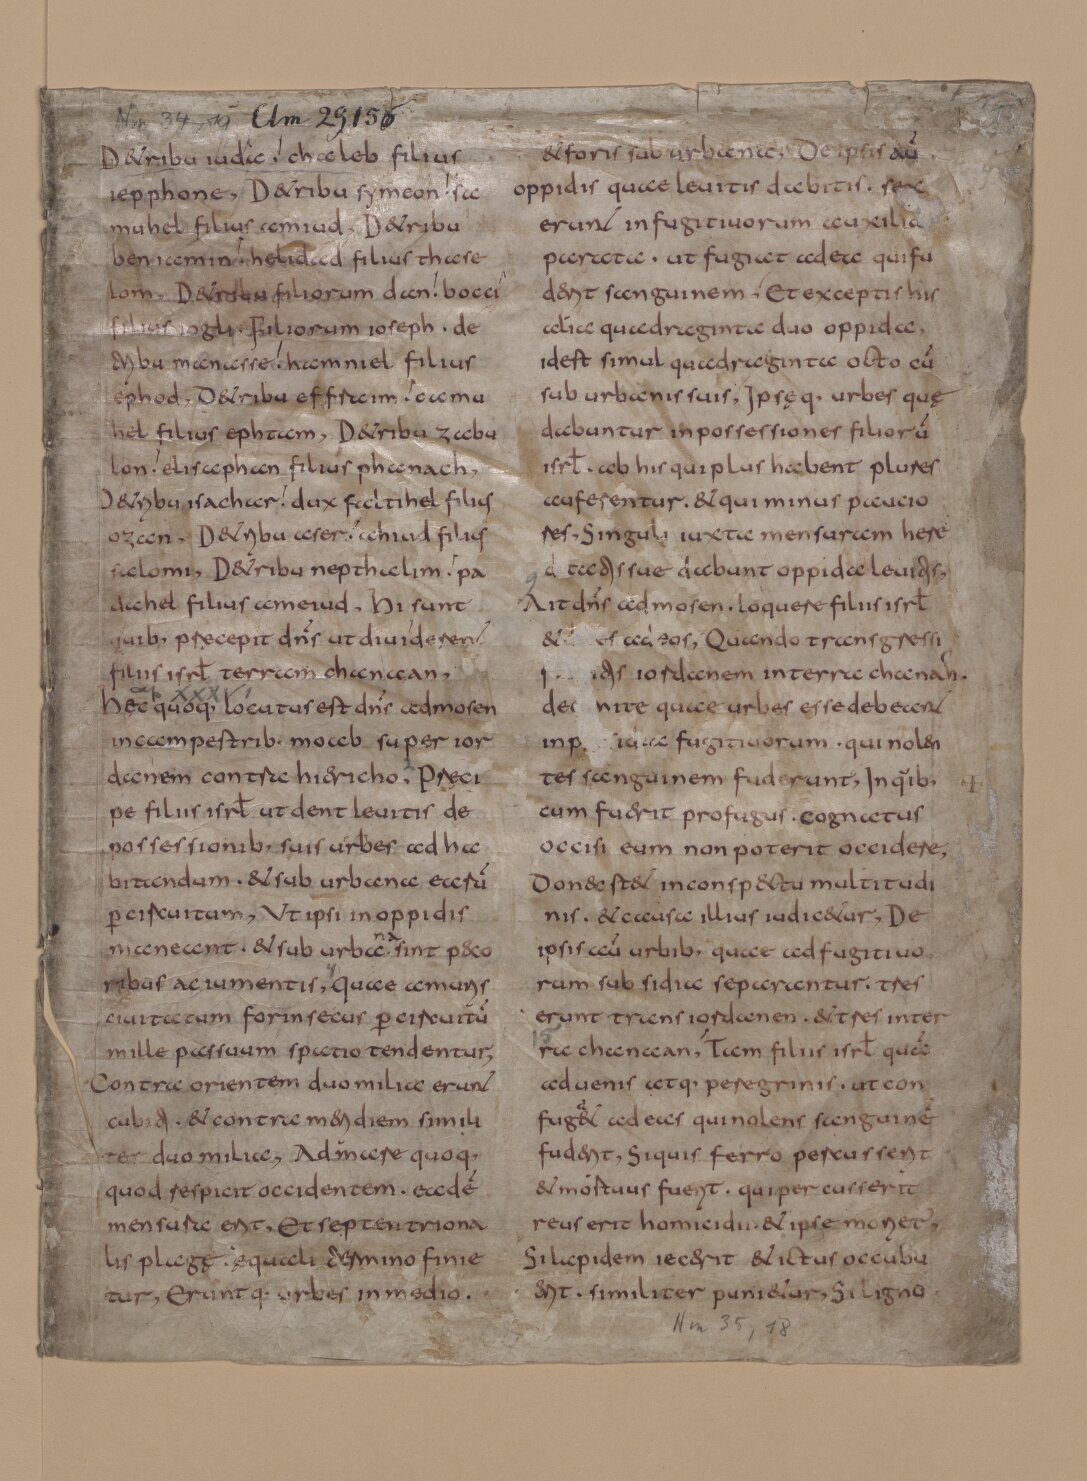 Nm 34, 19 Clm 29156
D&tribu iudae! chaleb filius
iepphone, D&tribu symeon! sa
muhel filius amiud, D&tribu
beniamin! helidad filius chase
lom, D&tribu filiorum dan! bocci
filius iogli, Filiorum ioseph · de
tribu manasse! hamniel filius
ephod, D&tribu effraim! camu
hel filius ephtam, D&tribu zabu
lon! elisaphan filius phanach,
D&tribu isachar! dux faltihel filius
ozan, D&tribu aser! ahiud filius
salomi, D&tribu nepthalim! pa
dahel filius ameiud, Hi sunt
quib; precepit dn̄s ut diuiderent
filiis isrł terram chanaan,
cap XXXVI
Hęc quoq; locutus est dn̄s admosen
incampestrib; moab super ior
danem contra hiericho, Pręci
pe filiis isrł ut dent leuitis de
possessionib; suis urbes ad ha
bitandum · & sub urbana earū
p̱ circuitum, Ut ipsi inoppidis
maneant · & sub urbana sint peco
ribus ac iumentis, Quae amuris
ciuitatum forinsecus p̱ circuitū
mille passuum spatio tendentur,
Contra orientem duo milia erunt
cubiti · & contra meridiem simili
ter duo milia, Ad mare quoq;
quod respicit occidentem · eadē
mensura erit, Et septentriona
lis plagę ęquali termino finie
tur, Eruntq; urbes inmedio ·
& foris sub urbana, De ipsis aū
oppidis quae leuitis dabitis · sex
erunt infugitiuorum auxilia
parata · ut fugiat adea quifu
derit sanguinem, Et exceptis his
alia quadraginta duo oppida,
idest simul quadraginta octo cū
sub urbanis suis, Ipsęq; urbes quę
dabuntur inpossessiones filiorū
isrł · ab his qui plus habent plures
auferentur · & qui minus paucio
res, Singuli iuxta mensuram here
ditatis sue dabunt oppida leuitis,
Ait dn̄s admosen · loquere filiis isrł
& es ad eos, Quando transgressi
tis iordanem interra chanaan ·
de nite quae urbes esse debeant
inp sidia fugitiuorum · qui nolen
tes sanguinem fuderunt, Inquib;
cum fuerit profugus · cognatus
occisi eum non poterit occidere,
Donec st& inconspectu multitudi
nis · & causa illius iudic&ur, De
ipsis aū urbib; quae ad fugitiuo
rum sub sidia separantur · tres
erunt trans iordanen · & tres inter
ra chanaan, Tam filiis isrł quā
aduenis atq; peregrinis · ut con
fug&̇ ad eas qui nolens sanguinē
fuderit, Siquis ferro percusserit
& mortuus fuerit · qui percusserit
reus erit homicidii · & ipse moriet̄,
Silapidem iecerit & ictus occubu
erit · similiter puni&ur, Siligno
Nm 35, 18